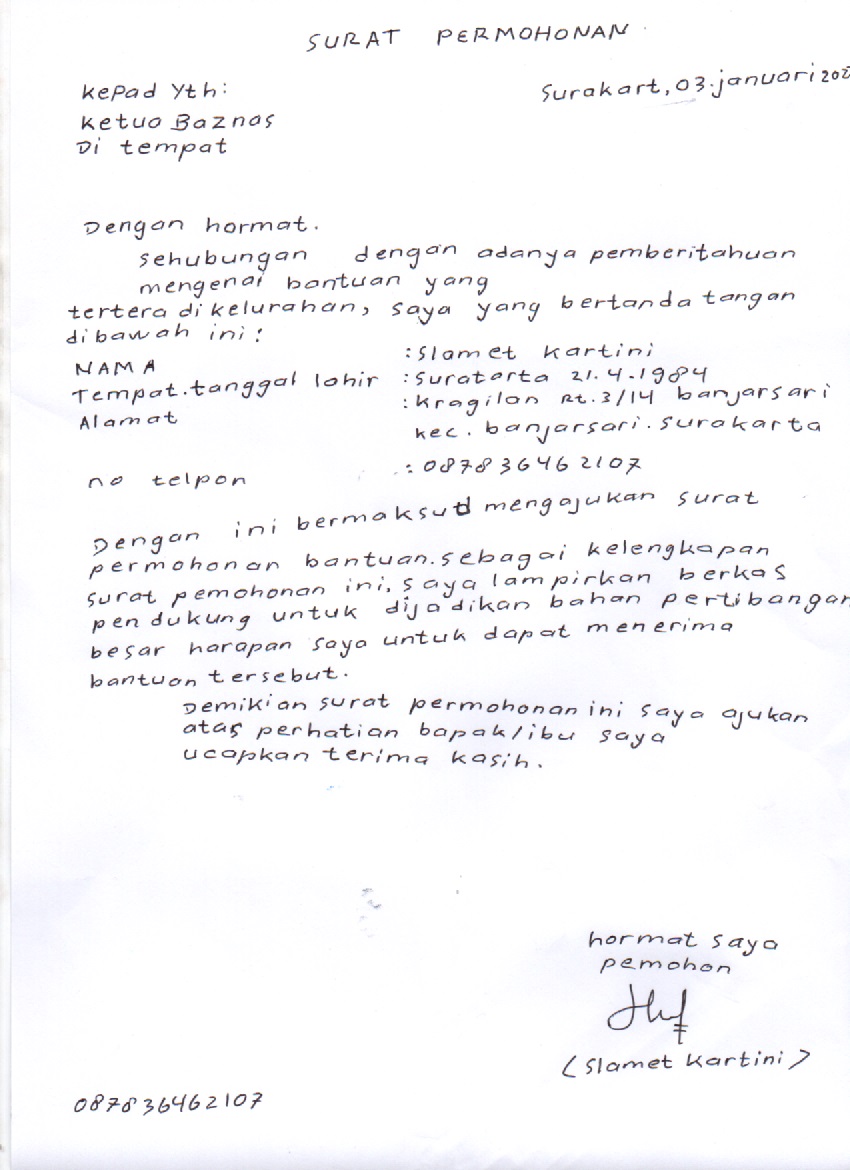 SURAT PERMOHONAN
Surakart, 03.januari 202
kepad Yth:
ketua Baznas
Di tempat
Dengan hormat.
sehubungan dengan adanya pemberitahuan
mengenai bantuan yang
tertera dikelurahan, saya yang bertanda tangan
dibawah ini:
NAMA :Slamet kartini
Tempat.tanggal lahir :Suratarta 21.4.1984
Alamat :kragilan Rt.3/14 banjarsari
kec. banjarsari.surakarta
no telpon :087836462107
Dengan ini bermaksud mengajukan surat
permohonan bantuan.sebagai kelengkapan
surat pemohonan ini.saya lampirkan berkas
pendukung untuk dijadikan bahan pertibangan
besar harapan saya untuk dapat menerima
bantuan tersebut.
Demikian surat permohonan ini saya ajukan
atas perhatian bapak/ibu saya
ucapkan terima kasih.
hormat saya
pemohon
(Slamet Kartini)
087836462107